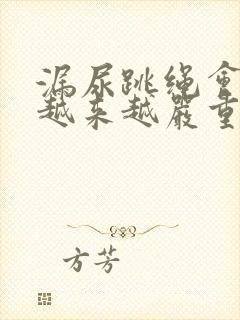 漏尿跳绳会
越来越严重
方芳